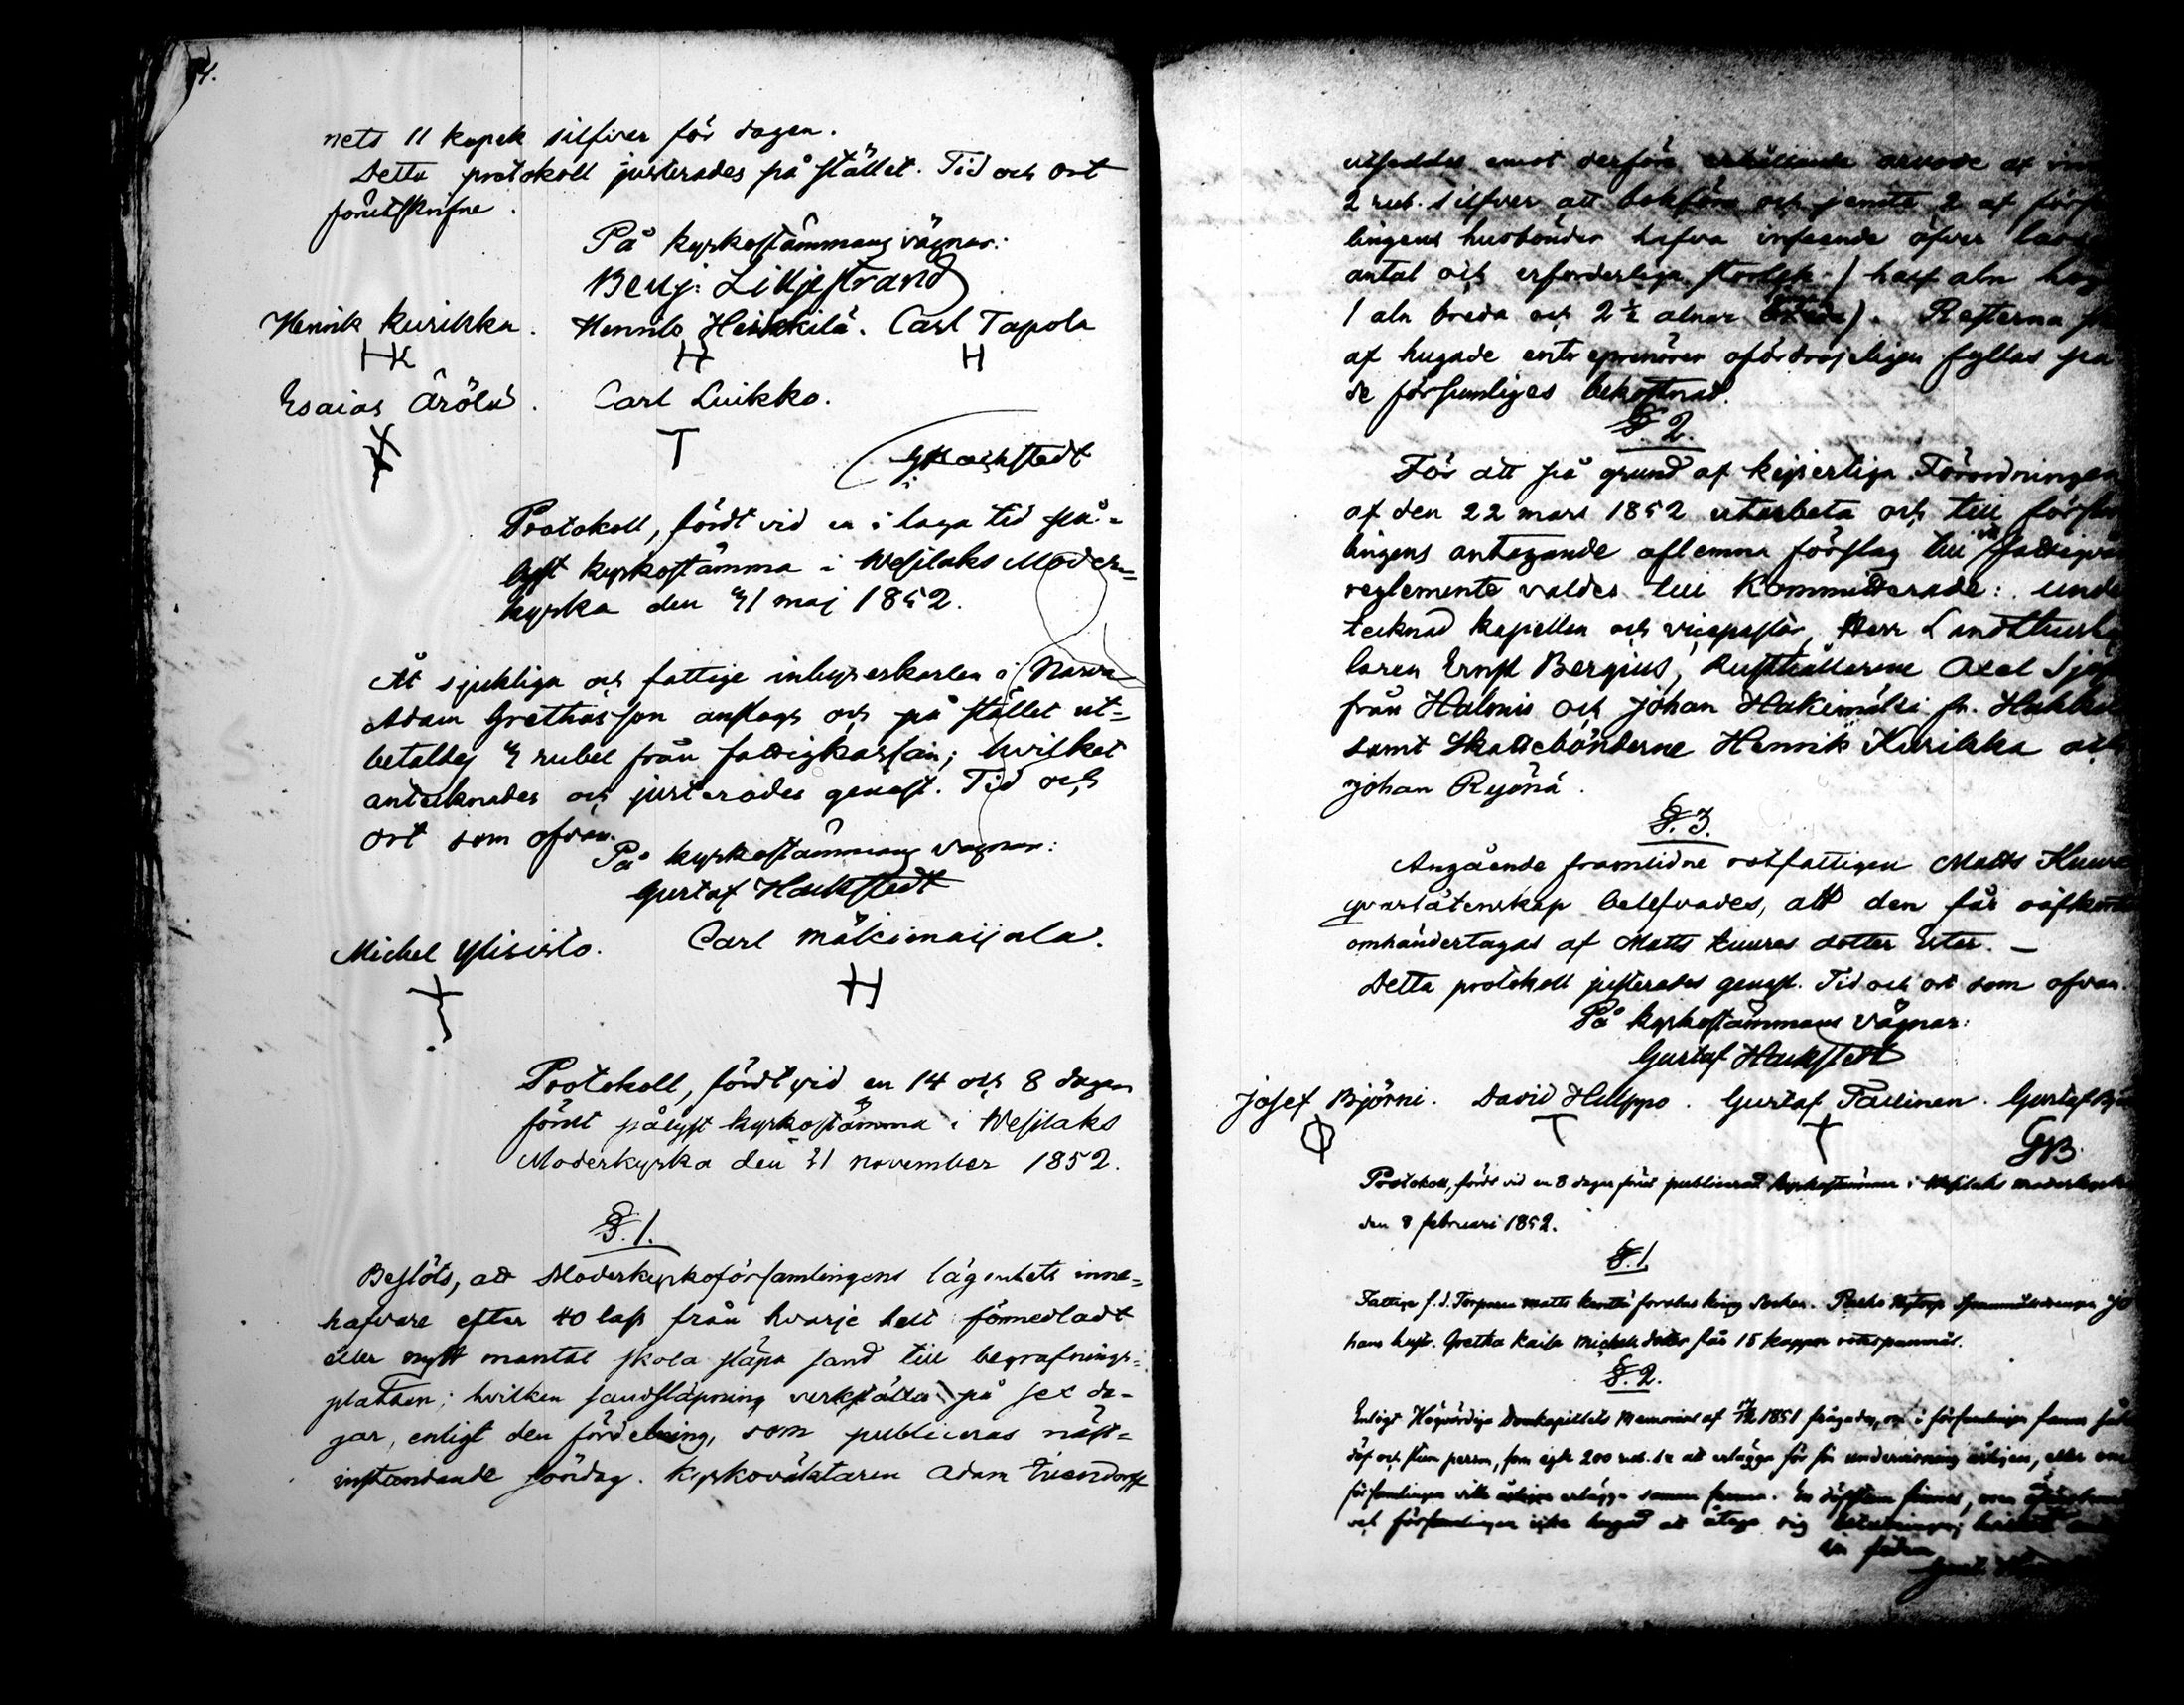 4.
nets 11 kopek silfver för dagen.
Detta protokoll justerades på stället. Tid och ort
förutskrifne.
På kyrkostämmans vägnar:
Benj: Lilljestrand
Henrik Kurikka. Henrik Heikkilä. Carl Tapola
HK H H
Esaias Ärölä. Carl Luikko.
T
GHackstedt
Protokoll, fördt vid en i laga tid på-
lyst kyrkostämma i Wesilaks Moder-
kyrka den 31 maj 1852.
Åt sjukliga och fattige inhyseskarlen i Narva
Adam Grethasson anslogs och på stället ut-
betaltes 3 rubel från fattigkassan; hvilket
antecknades och justerades genast. Tid och
ort som ofvan.
På kyrkostämmans vägnar:
Gustaf Hackstedt
Michel Ylisisto. Carl Mäkimaijala.
H
Protokoll, fördt vid en 14 och 8 dagar
förut pålyst kyrkostämma i Wesilaks
Moderkyrka den 21 november 1852.
§. 1.
Beslöts, att Moderkyrkoförsamlingens lägenhets inne-
hafvare efter 40 lass från hvarje helt förmedladt
eller nytt mantal skola släpa sand till begrafnings-
platsen; hvilken sandsläpning verkställes på sex da-
gar, enligt den fördelning, som publiceras näst-
instundande söndag. Kyrkoväktaren Adam
utseddes emot derföre erhållande arvode af
2 rub. silfver att bokföra och jemte 2 af förs
lingens husbönder hafva inseende öfver
antal och erforderliga storlek) half aln
1 aln breda och 2 ½ alnar ). Resterna
af hugade entreprenörer ofördröjeligen fyllas på
de försumliges bekostnad.
§. 2.
För att på grund af kejserliga Förordningen
af den 22 mars 1852 utarbeta och till försam
lingens antagande aflemna förslag till fattigvå
reglemente valdes till Kommitterade: unde
tecknad kapellan och vicepastor, Herr Landthus
laren Ernst Bergius, Rusthållarene Axel
från Halmis och Johan Hakimäki fr.
samt Skattebönderne Henrik Kurikka och
Johan Ryönä.
§. 3.
Angående framlidne rotfattigen Matts
qvarlåtenskap belefvades, att den får
omhändertagas af Matts Kuures dotter Ester. —
Detta protokoll justerades genast. Tid och ort som ofvan.
På kyrkostämmans vägnar:
Gustaf Hackstedt
Josef Björni. David Huppo. Gustaf Taulinen. Gustaf
T GB
Protokoll, fördt vid en 8 dagar förut publicerad kyrkostämma i Wesilaks moderkyrka
den 8 februari 1852.
§. 1
Fattige f.d. Torparen Matts forslas kring Socken.
hans hust. Gretha Kaisa Michels dotter får 15 kappar rotespannmål.
§. 2.
Enligt Högvördiga Domkapitlets Memorial af 1851 frågades, om i församlingen fanns
döf och stum person, som egde 200 rub. s:r att erlägga för sin undervisning årligen, eller om
församlingen ville årligen erlägga samma summa. En döfstum finnes, men
och församlingen icke hugad att åtaga sig